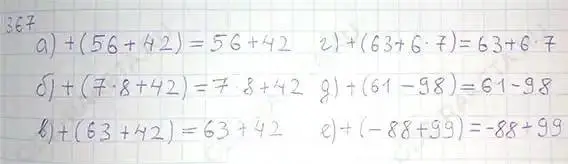 367
а) +(56+42) = 56+42 г) +(63+6·7)=63+6·7
б) +(7·8+42)=7·8+42 д) +(61-98)=61-98
в) +(63+42)=63+42 е) +(-88+99)=-88+99